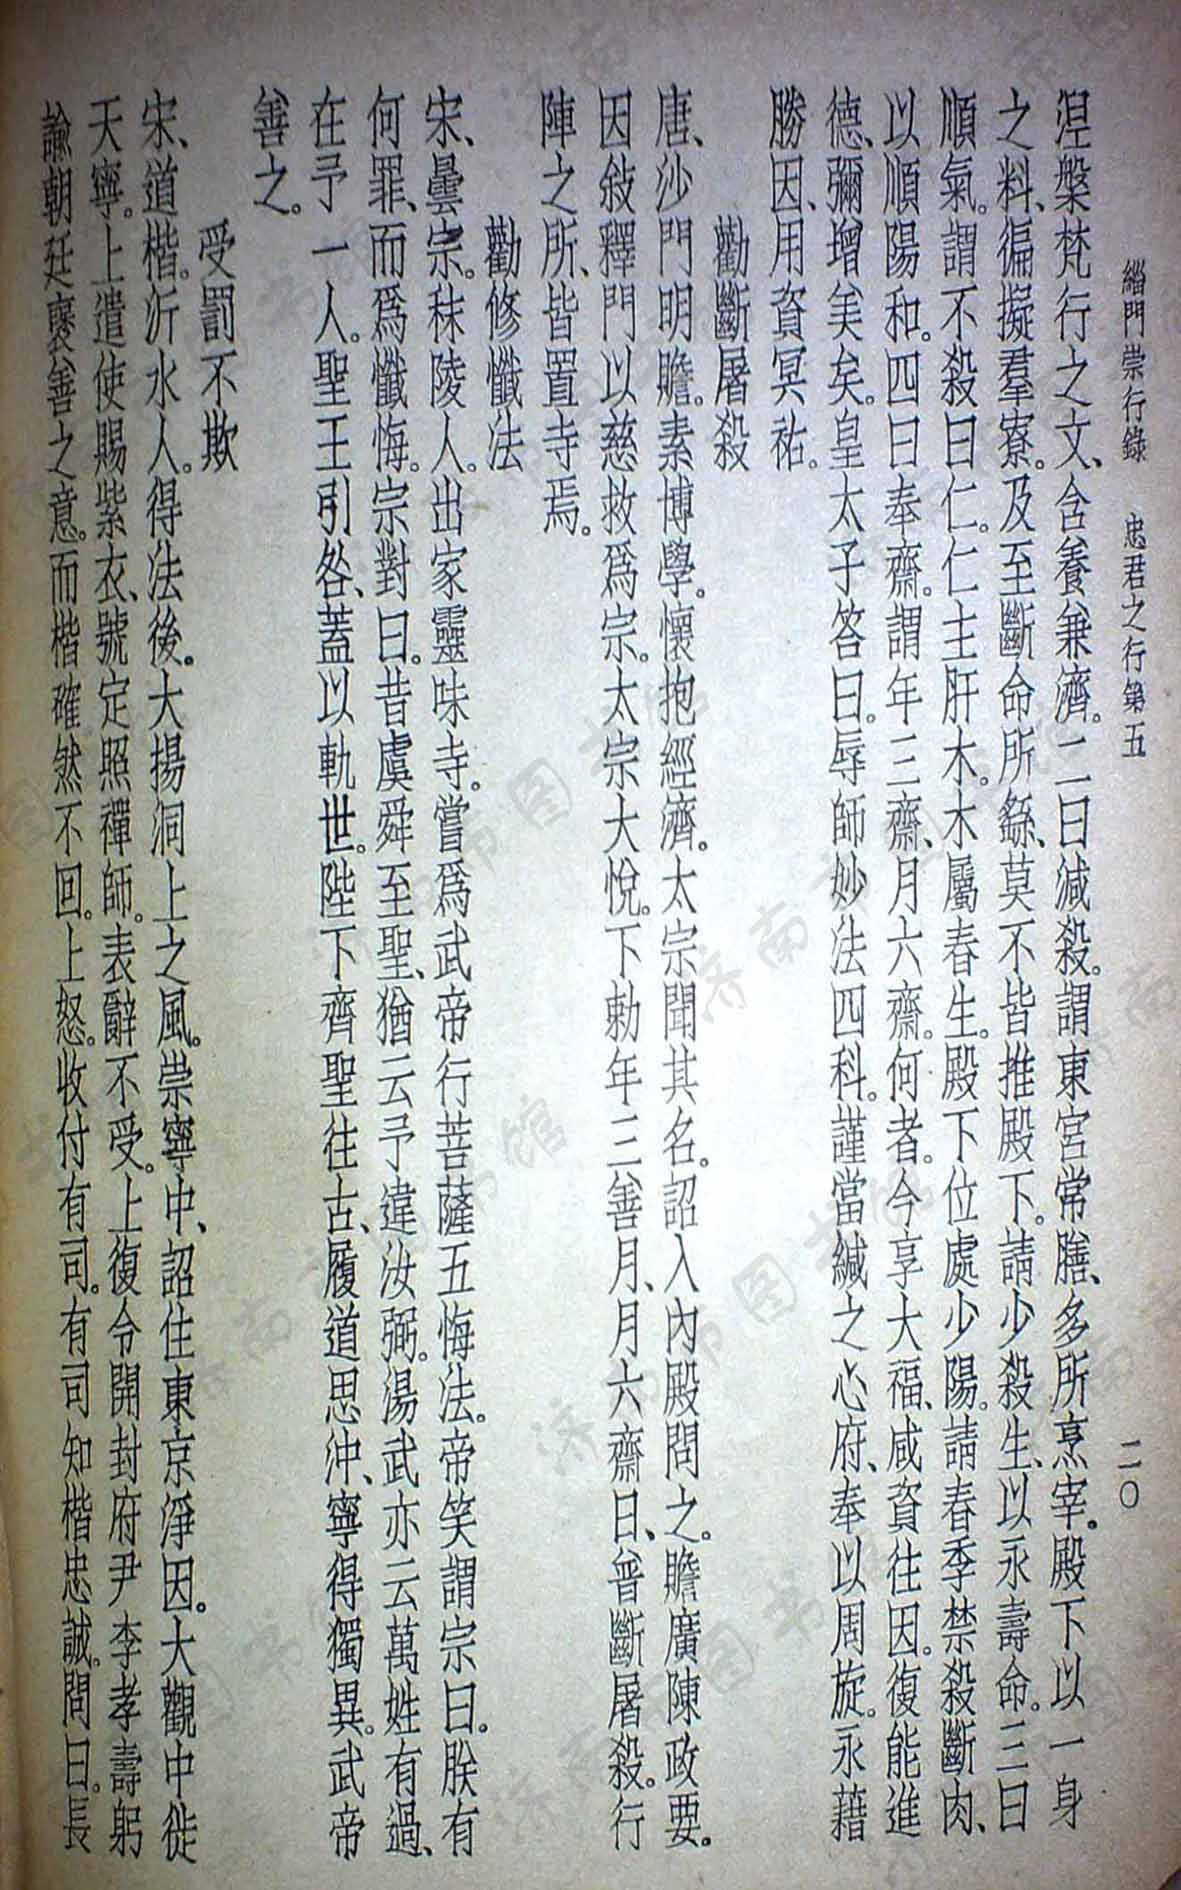 緇門崇行錄　忠君之行第五　二〇
涅槃梵行之文、含養兼濟。二曰減殺。謂東宮常膳、多所烹宰。殿下以一身
之料、徧擬羣寮。及至斷命所繇、莫不皆推殿下。請少殺生、以永壽命。三曰
順氣。謂不殺曰仁。仁主肝木。木屬春生。殿下位處少陽。請春季禁殺斷肉、
以順陽和。四曰奉齋。謂年三齋、月六齋。何者。今享大福、咸資往因。復能進
德、彌增美矣。皇太子答曰。辱師妙法四科。謹當緘之心府、奉以周旋。永藉
勝因、用資冥祐。
勸斷屠殺
唐、沙門明瞻。素博學。懷抱經濟。太宗聞其名。詔入內殿問之。瞻廣陳政要。
因敍釋門以慈救爲宗。太宗大悅。下勅年三善月、月六齋日、普斷屠殺。行
陣之所、皆置寺焉。
勸修懺法
宋、曇宗。秣陵人。出家靈味寺。嘗爲武帝行菩薩五悔法。帝笑謂宗曰。朕有
何罪、而爲懺悔。宗對曰。昔虞舜至聖、猶云予違汝弼。湯武亦云萬姓有過、
在予一人。聖王引咎、蓋以軌世。陛下齊聖往古、履道思沖、寧得獨異。武帝
善之。
受罰不欺
宋、道楷。沂水人。得法後。大揚洞上之風。崇寧中、詔住東京淨因。大觀中徙
天寧。上遣使賜紫衣、號定照禪師。表辭不受。上復令開封府尹李孝壽躬
諭朝廷襃善之意。而楷確然不回。上怒。收付有司。有司知楷忠誠。問曰。長